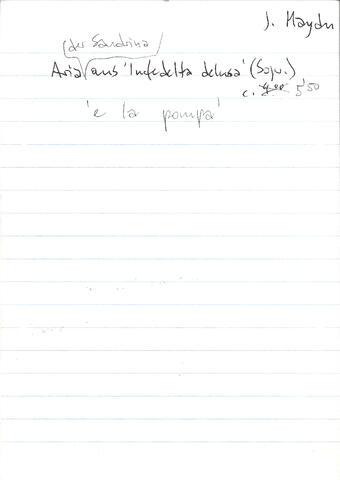 J. Haydn
(der Sandrina)
Aria aus 'Infedelta delusa' (Sopr.)
c. 5'50
'e la pompa'